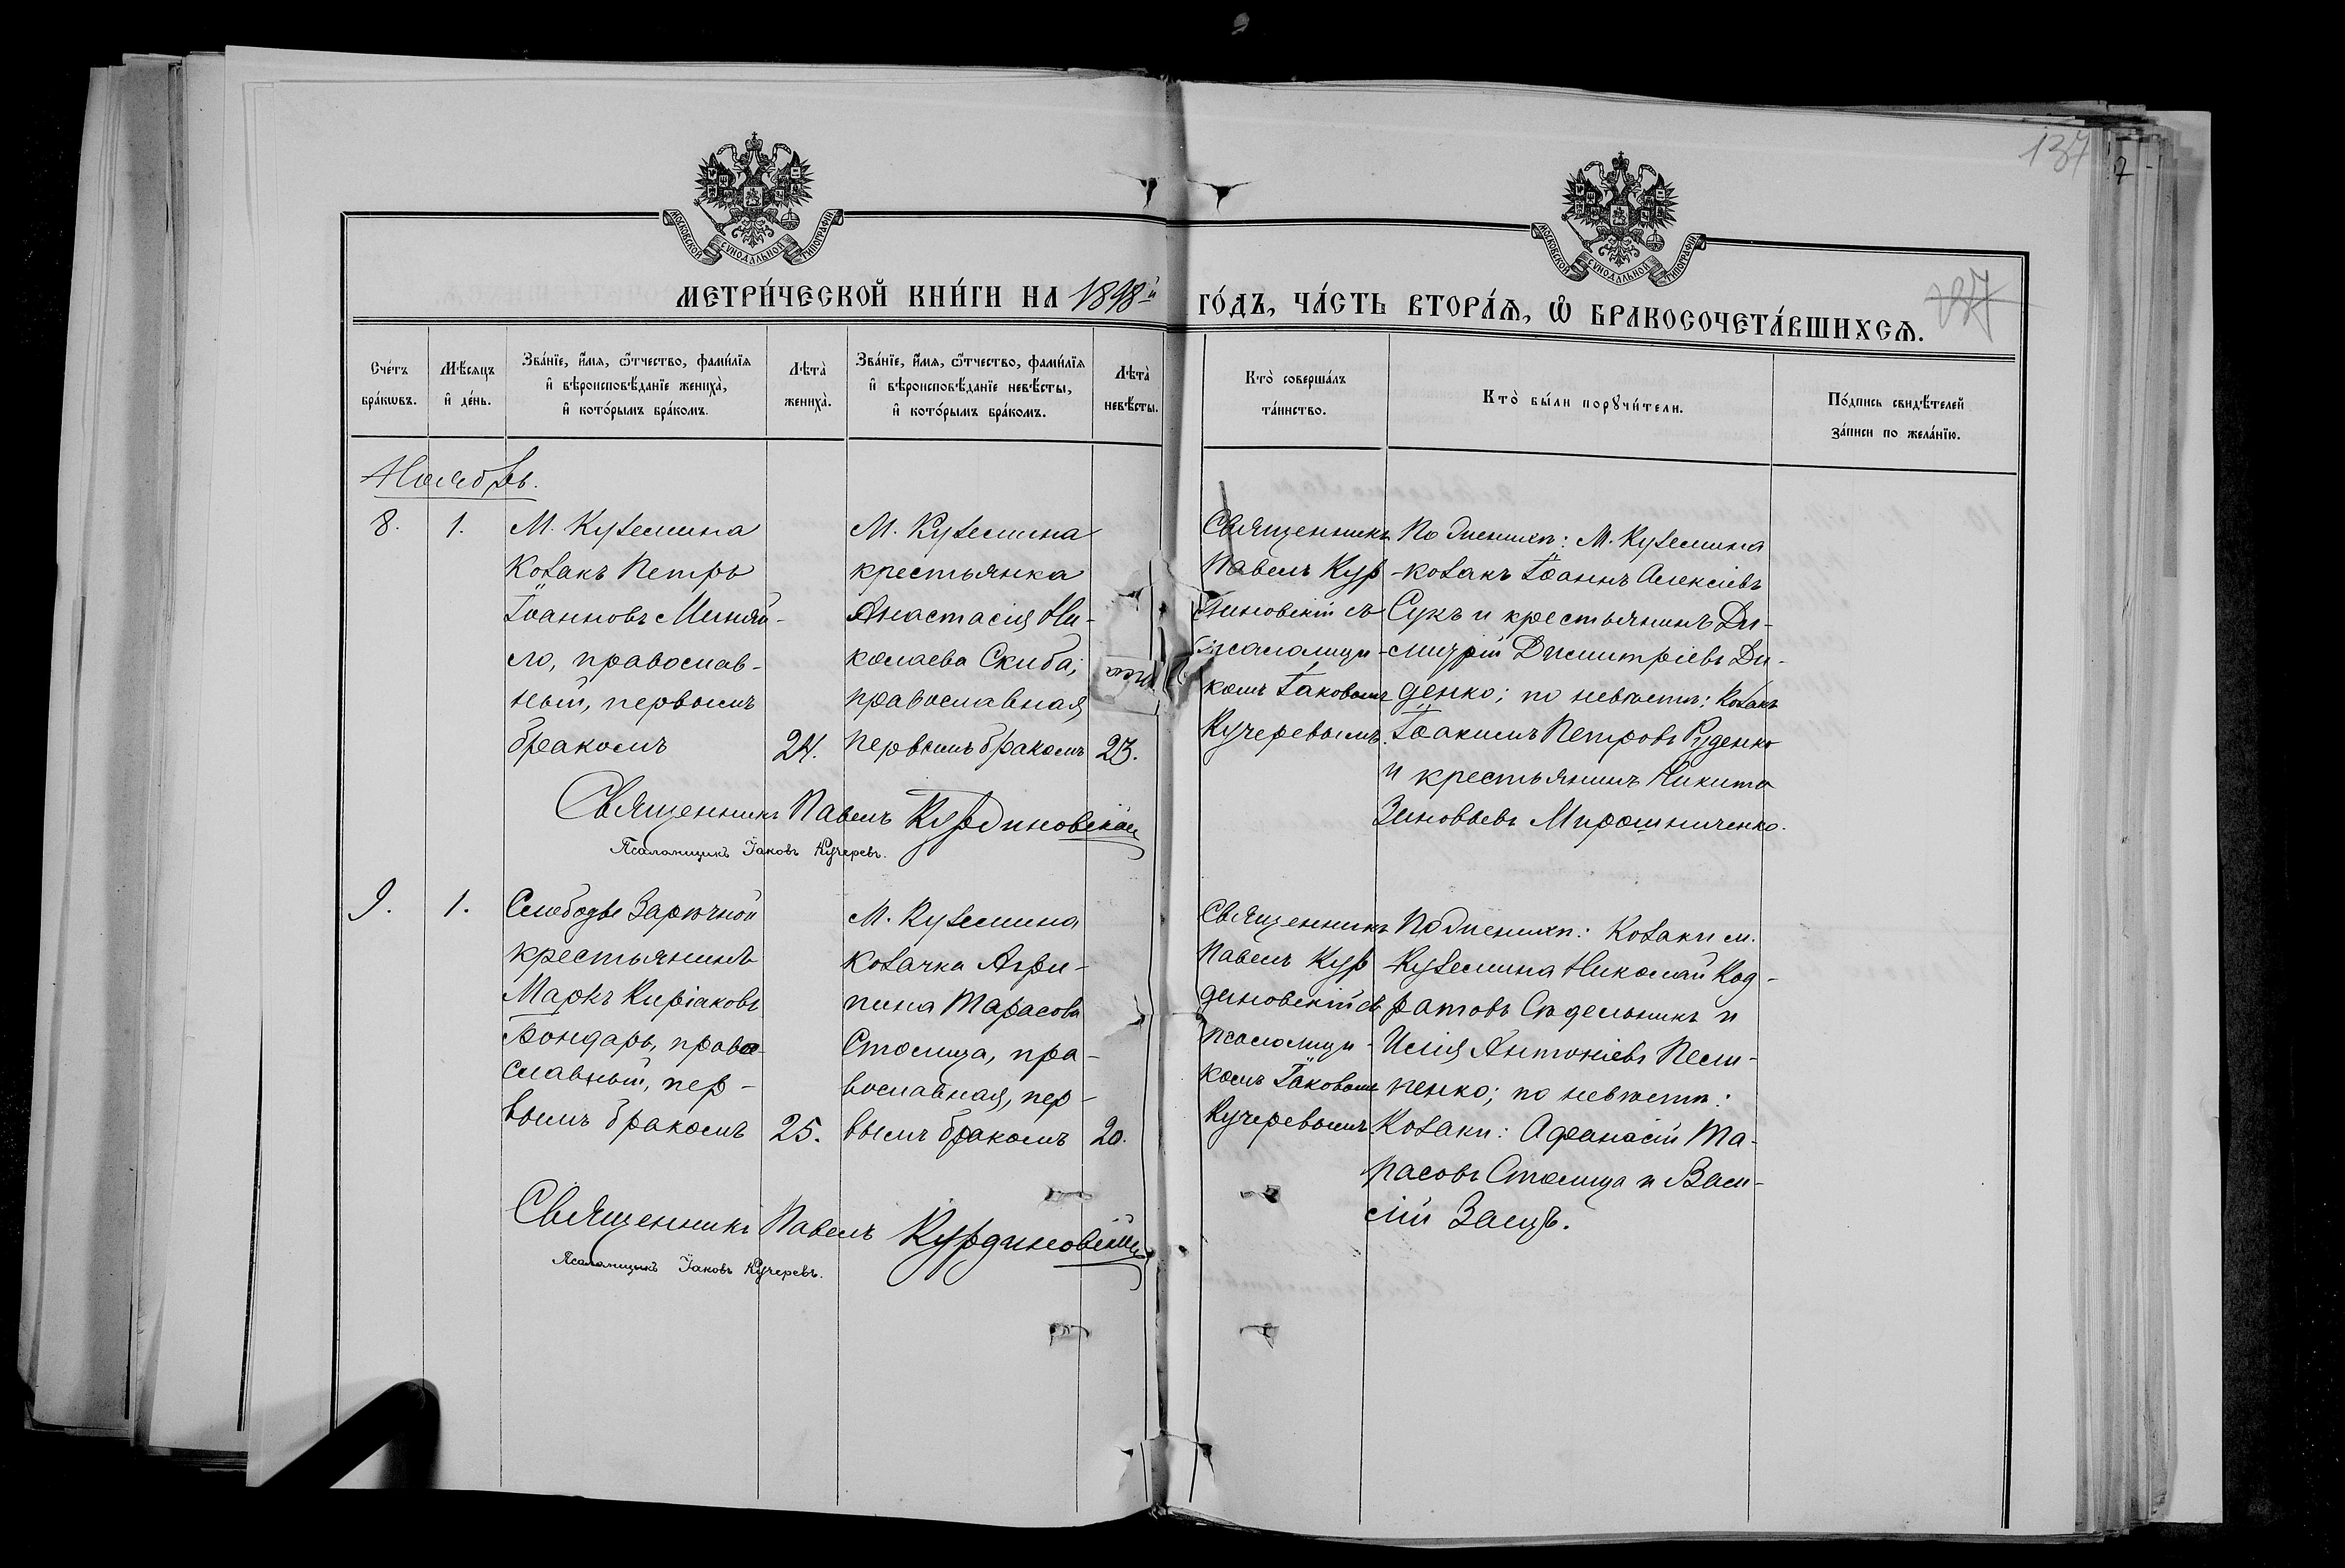 137
МОСКОВСКОЙ СУНОДАЛЬНОЙ ТИПОГРАФІИ
МОСКОВСКОЙ СУНОДАЛЬНОЙ ТИПОГРАФІИ
МЕТРИ́ЧЕСКОЙ КНИ́ГИ НА 1898й ГО́ДЪ, ЧА́СТЬ ВТОРА́Ѧ, Ѡ҆ БРАКОСОЧЕТА́ВШИХСѦ.
Сче́тъ бра́кѡвъ.
Мѣ́сяцъ и҆ де́нь.
Зва́нїе, и҆́мя, ѻ҆́тчество, фами́лїя
и҆ вѣроисповѣ́данїе жениха̀,
и҆ кото́рымъ бра́комъ.
Лѣта̀ жениха̀.
Зва́нїе, и҆́мя, ѻ҆́тчество, фами́лїя
и҆ вѣроисповѣ́данїе невѣ́сты,
и҆ кото́рымъ бра́комъ.
Лѣта̀ невѣ́сты.
Кто̀ соверша́лъ
та́инство.
Кто̀ бы́ли порꙋчи́тели.
По́дпись свидѣ́телей
за́писи по жела́нїю.
Ноябрь.
8.
1.
М. Куземина
козакъ Петръ
Іоанновъ Миняй-
ло, православ-
ный, первымъ
бракомъ
24.
М. Куземина
крестьянка
Анастасія Ни-
колаева Скиба;
православная
первымъ бракомъ
23.
Священникъ
Павелъ Кур-
диновскій съ
псаломщи-
комъ Іаковомъ
Кучеревымъ.
По женихѣ: М. Куземина
козакъ Іоаннъ Алексіевъ
Сукъ и крестьянинъ Ди-
митрій Димитріевъ Ди-
денко; по невѣстѣ: козакъ
Іоакимъ Петровъ Руденко
и крестьянинъ Никита
Зиновьевъ Мирошниченко.
Священникъ Павелъ Курдиновскій
Псаломщикъ Іаковъ Кучеревъ.
9.
1.
Слободы Зарѣчной
крестьянинъ
Маркъ Киріаковъ
Бондарь, право-
славный, пер-
вымъ бракомъ
25.
М. Куземина
козачка Агри-
пина Тарасова
Столица, пра-
вославная, пер-
вымъ бракомъ
20.
Священникъ
Павелъ Кур-
диновскій съ
псаломщи-
комъ Іаковомъ
Кучеревымъ
По женихѣ: Козаки м.
Куземина Николай Код-
ратовъ Сѣдельникъ и
Илія Антоніевъ Пели-
пенко; по невѣстѣ:
Козаки: Афанасій Та-
расовъ Столица и Васи-
лій Заецъ.
Священникъ Павелъ Курдиновскій
Псаломщикъ Іаковъ Кучеревъ.